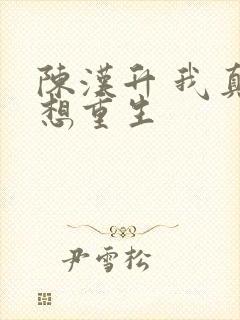 陳漢升 我真
想重生
尹雪松